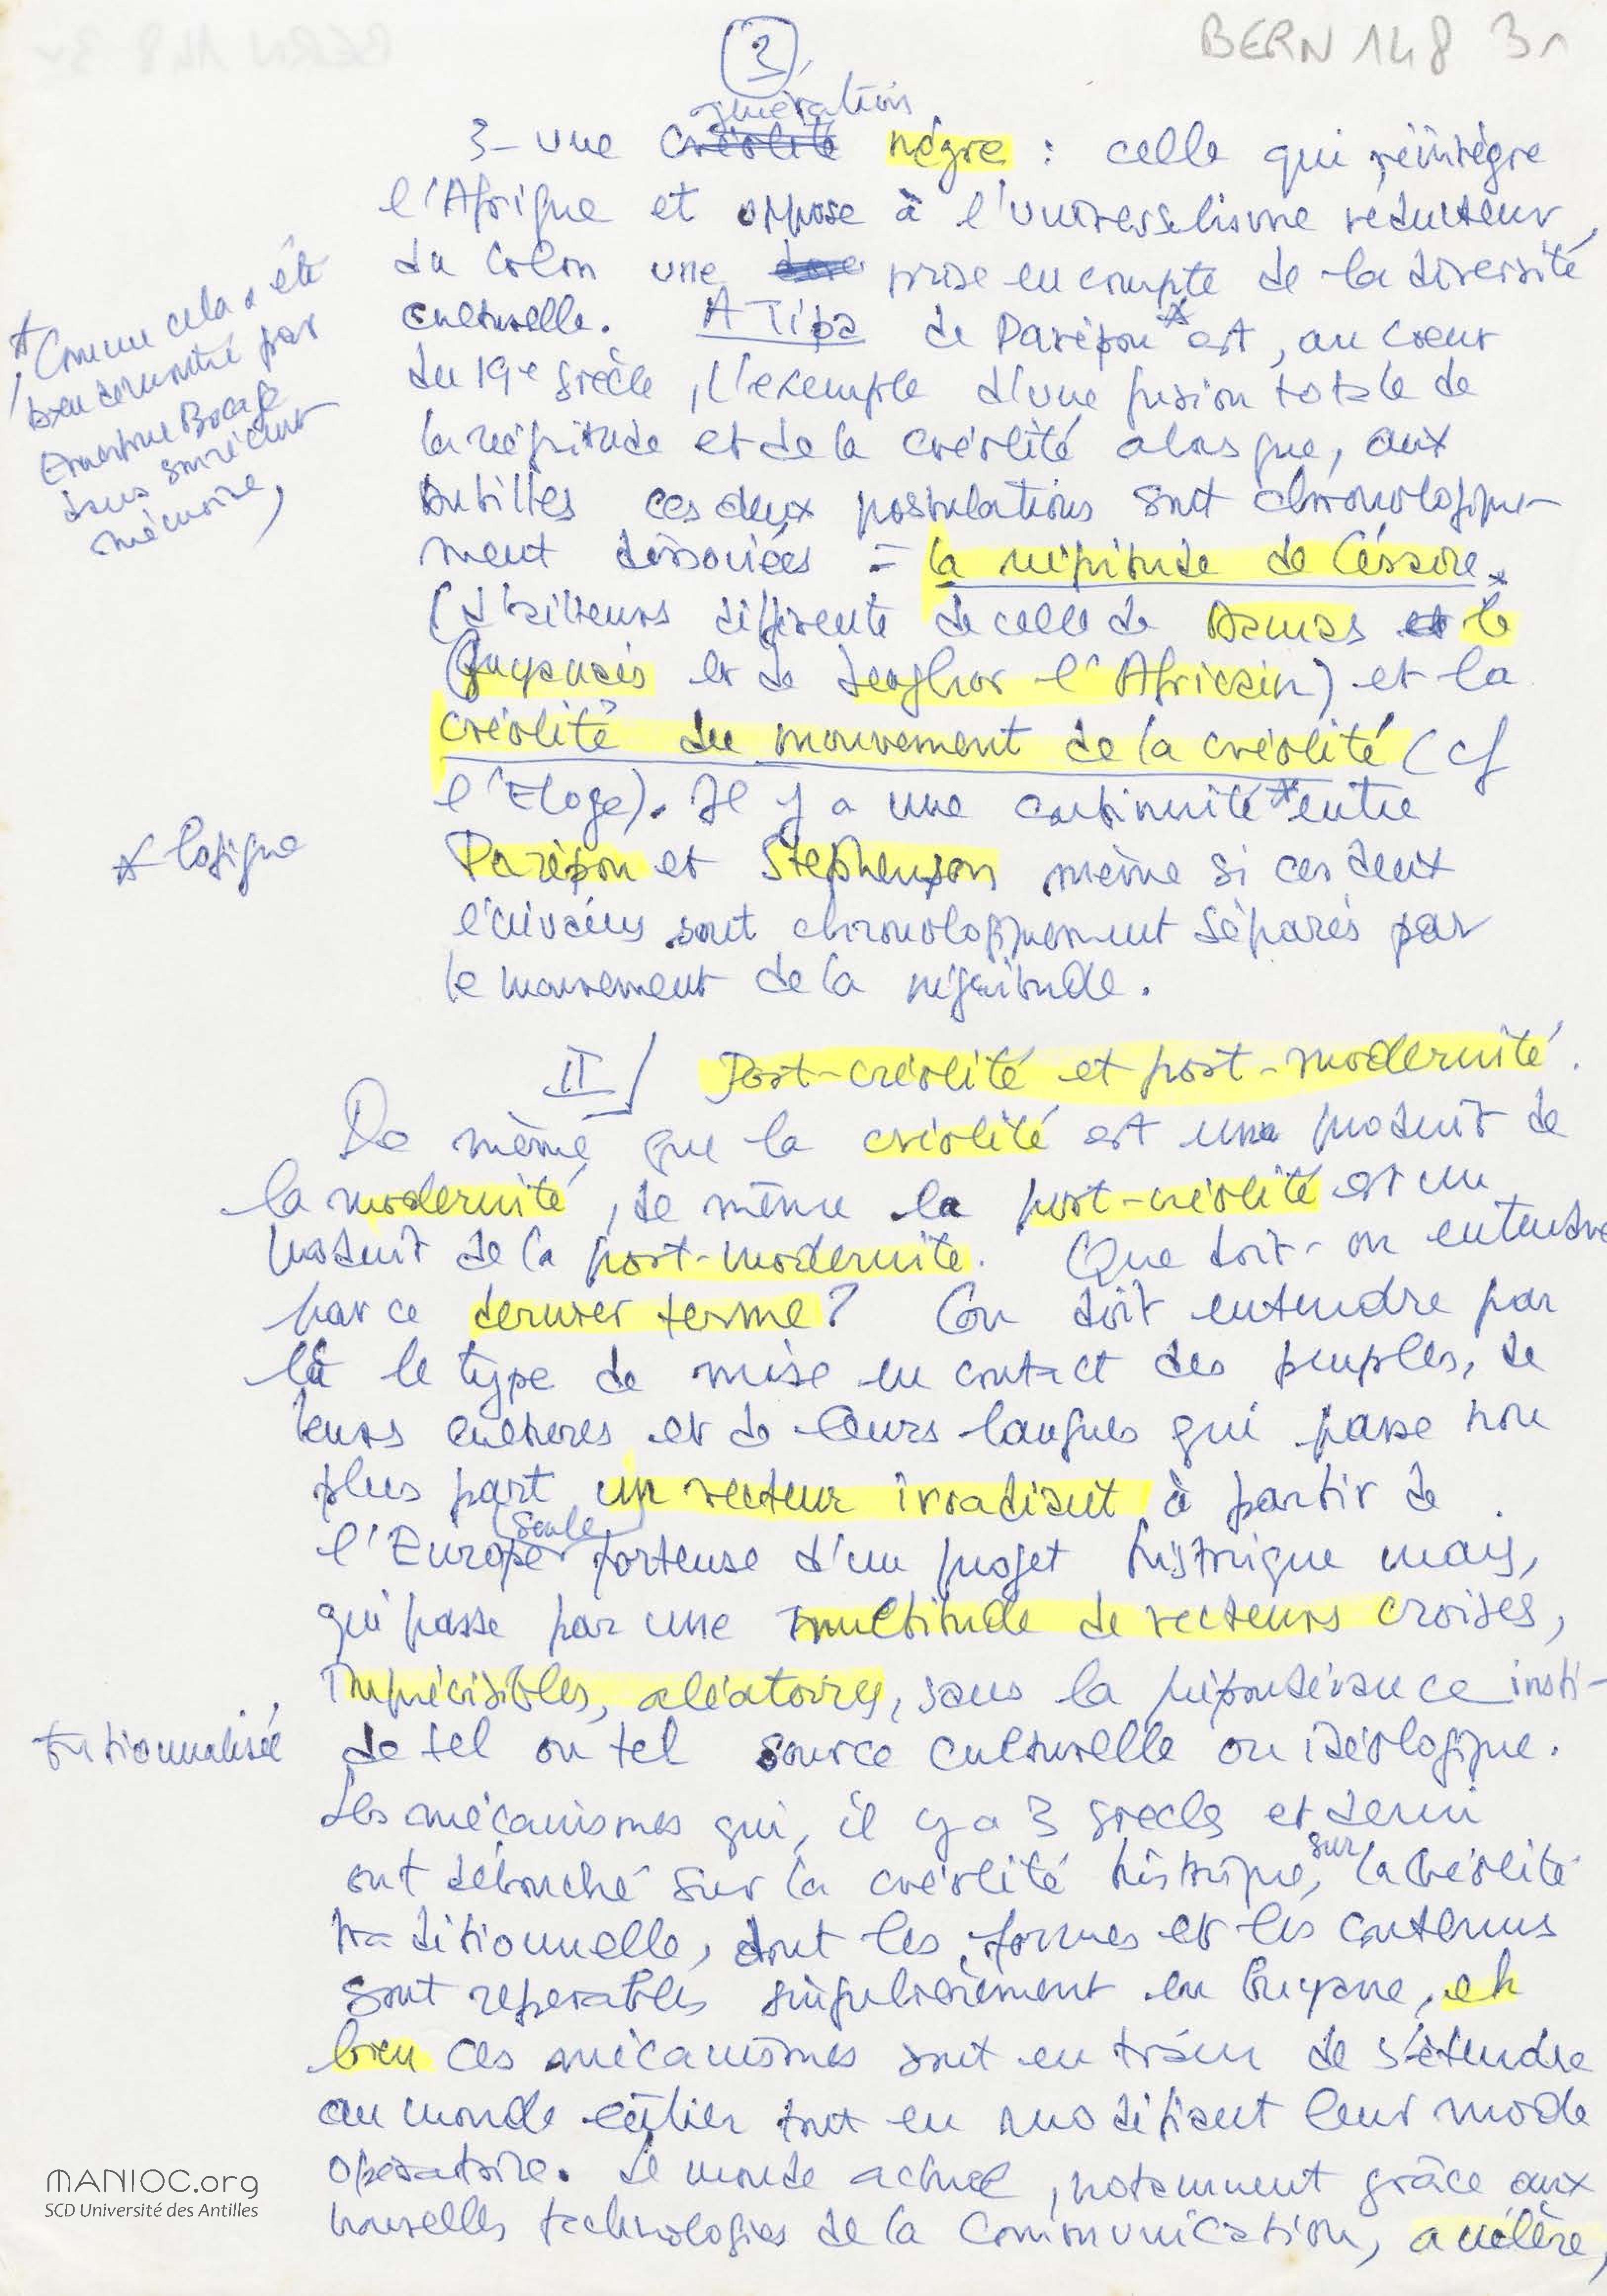 BERN 148 3r
3
génération
3- une créolité nègre : celle qui réintègre
l'Afrique et oppose à l'universalisme réducteur
du Colon une prise en compte de la diversité
culturelle. ATipa de Parépou* est, au cœur
du 19e siècle, l'exemple d'une fusion totale de
la négritude et de la créolité alors que, aux
Antilles ces deux postulations sont chronologique-
ment dissociées = la négritude de Césaire
(d'ailleurs différente de celle de Damas le
Guyanais et de Senghor l'Africain) et la
créolité du mouvement de la créolité (cf
l'Eloge). Il y a une continuité* entre
Parépou et Stephenson même si ces deux
écrivains sont chronologiquement séparés par
le mouvement de la négritude.
* Comme cela a été
bien démontré par
Ernestine Bocage
dans son récent
mémoire,
* logique
II/ Post-créolité et post-modernité.
De même que la créolité est un produit de
la modernité, de même la post-créolité est un
produit de la post-modernité. Que doit-on entendre
par ce dernier terme? On doit entendre par
là le type de mise en contact des peuples, de
leurs cultures et de leurs langues qui passe non
plus part un vecteur irradiant à partir de
l'Europe (seule) porteuse d'un projet historique mais,
qui passe par une multitude de vecteurs croisés,
Imprécisibles, aléatoires, sans la prépondérance insti-
tutionnalisée de tel ou tel source culturelle ou idéologique.
Les mécanismes qui, il y a 3 siècles et demi
ont débouché sur la créolité historique, sur la créolité
traditionnelle, dont les formes et les contenus
sont reperables singulièrement en Guyane, eh
bien ces mécanismes sont en train de s'étendre
au monde entier tout en modifiant leur mode
opératoire. Le monde actuel, notamment grâce aux
nouvelles technologies de la Communication, accélère,
MANIOC.org
SCD Université des Antilles